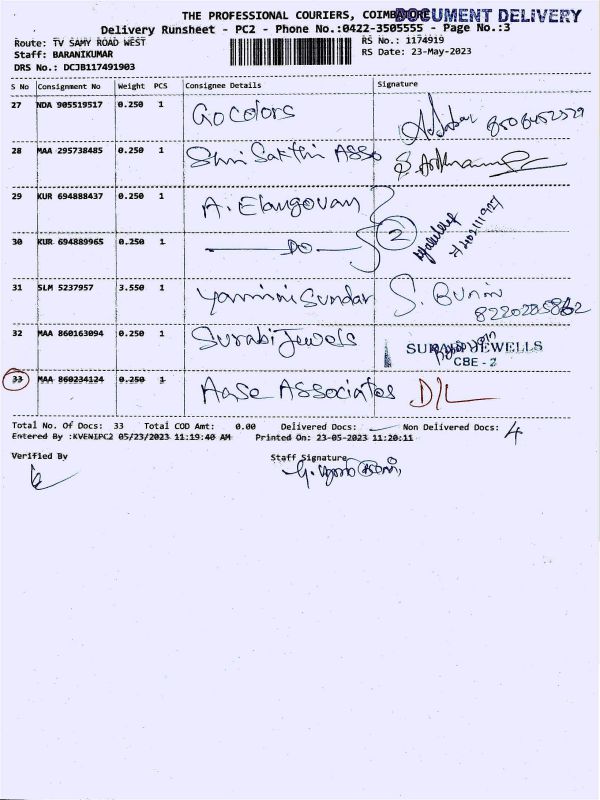 THE PROFESSIONAL COURIERS, COIMBATORE
DOCUMENT DELIVERY
Delivery Runsheet - PC2 - Phone No.:0422-3505555 - Page No.:3
Route: TV SAMY ROAD WEST
RS No.: 1174919
Staff: BARANIKUMAR
RS Date: 23-May-2023
DRS No.: DCJB117491903
S No Consignment No Weight PCS Consignee Details Signature
27 NDA 905519517 0.250 1 Go Colors
28 MAA 295738485 0.250 1 Shri Sakthi Asso
29 KUR 694888437 0.250 1 A. Elangovan
2
30 KUR 694889965 0.250 1 DO
31 SLM 5237957 3.550 1 Yamini Sundar
32 MAA 860163094 0.250 1 Surabi Jewels
SURABI JEWELLS
CBE - 2
33 MAA 860234124 0.250 1 Aase Associates D/L
Total No. Of Docs: 33 Total COD Amt: 0.00 Delivered Docs: Non Delivered Docs: 4
Entered By :KVENIPC2 05/23/2023 11:19:40 AM Printed On: 23-05-2023 11:20:11
Verified By
Staff Signature